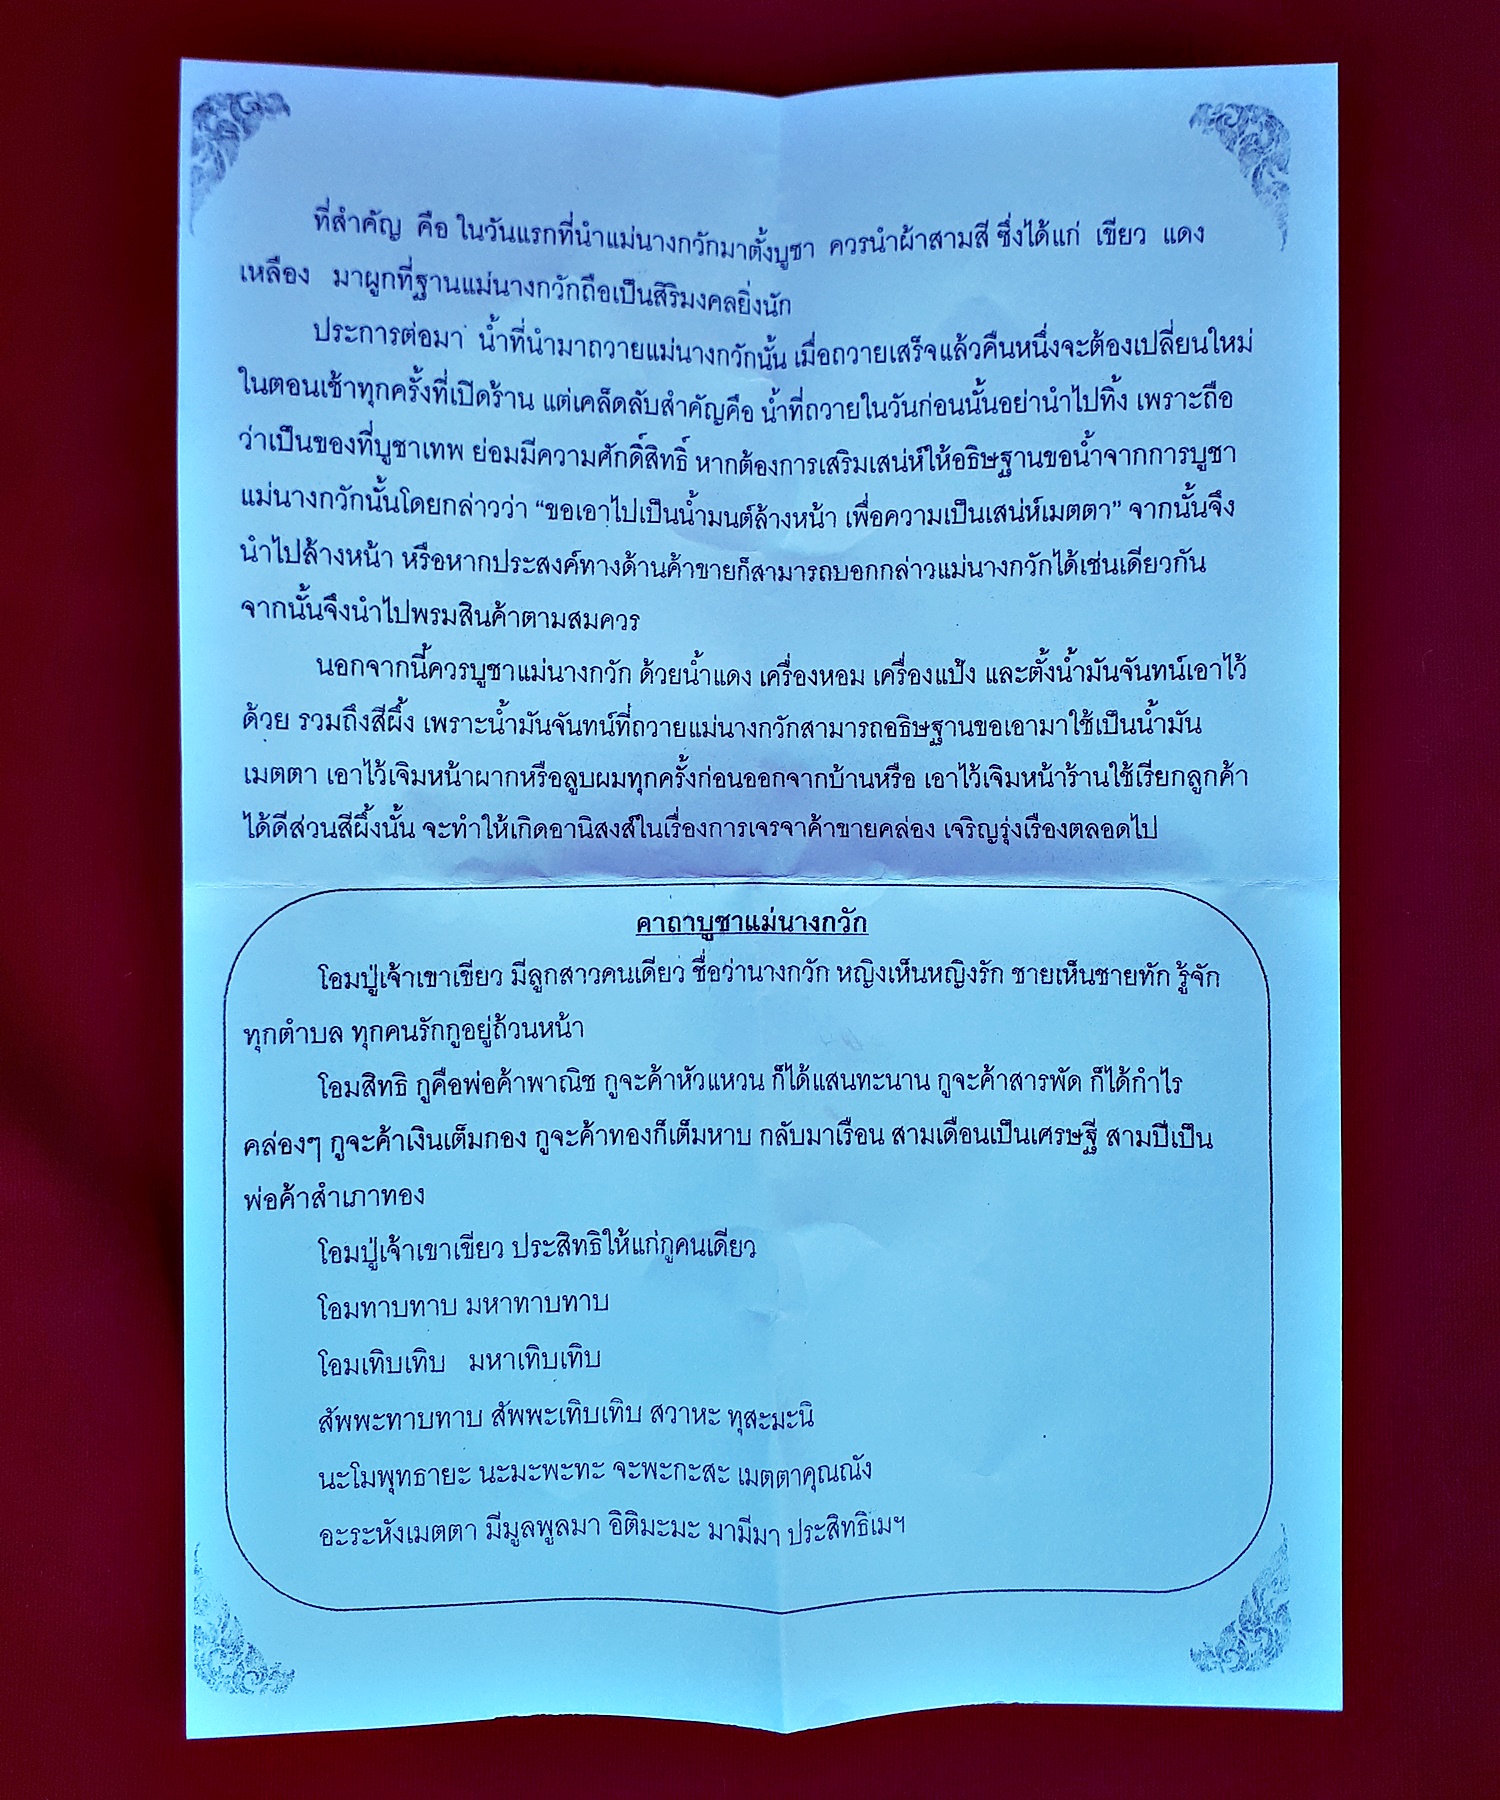 ที่สำคัญ คือ ในวันแรกที่นำแม่นางกวักมาตั้งบูชา ควรนำผ้าสามสี ซึ่งได้แก่ เขียว แดง
เหลือง มาผูกที่ฐานแม่นางกวักถือเป็นสิริมงคลยิ่งนัก
ประการต่อมา น้ำที่นำมาถวายแม่นางกวักนั้น เมื่อถวายเสร็จแล้วคืนหนึ่งจะต้องเปลี่ยนใหม่
ในตอนเช้าทุกครั้งที่เปิดร้าน แต่เคล็ดลับสำคัญคือ น้ำที่ถวายในวันก่อนนั้นอย่านำไปทิ้ง เพราะถือ
ว่าเป็นของที่บูชาเทพ ย่อมมีความศักดิ์สิทธิ์ หากต้องการเสริมเสน่ห์ให้อธิษฐานขอน้ำจากการบูชา
แม่นางกวักนั้นโดยกล่าวว่า “ขอเอาไปเป็นน้ำมนต์ล้างหน้า เพื่อความเป็นเสน่ห์เมตตา” จากนั้นจึง
นำไปล้างหน้า หรือหากประสงค์ทางด้านค้าขายก็สามารถบอกกล่าวแม่นางกวักได้เช่นเดียวกัน
จากนั้นจึงนำไปพรมสินค้าตามสมควร
นอกจากนี้ควรบูชาแม่นางกวัก ด้วยน้ำแดง เครื่องหอม เครื่องแป้ง และตั้งน้ำมันจันทน์เอาไว้
ด้วย รวมถึงสีผึ้ง เพราะน้ำมันจันทน์ที่ถวายแม่นางกวักสามารถอธิษฐานขอเอามาใช้เป็นน้ำมัน
เมตตา เอาไว้เจิมหน้าผากหรือลูบผมทุกครั้งก่อนออกจากบ้านหรือ เอาไว้เจิมหน้าร้านใช้เรียกลูกค้า
ได้ดีส่วนสีผึ้งนั้น จะทำให้เกิดอานิสงส์ในเรื่องการเจรจาค้าขายคล่อง เจริญรุ่งเรืองตลอดไป
คาถาบูชาแม่นางกวัก
โอมปู่เจ้าเขาเขียว มีลูกสาวคนเดียว ชื่อว่านางกวัก หญิงเห็นหญิงรัก ชายเห็นชายทัก รู้จัก
ทุกตำบล ทุกคนรักกูอยู่ถ้วนหน้า
โอมสิทธิ กูคือพ่อค้าพาณิช กูจะค้าหัวแหวน ก็ได้แสนทะนาน กูจะค้าสารพัด ก็ได้กำไร
คล่องๆ กูจะค้าเงินเต็มกอง กูจะค้าทองก็เต็มหาบ กลับมาเรือน สามเดือนเป็นเศรษฐี สามปีเป็น
พ่อค้าสำเภาทอง
โอมปู่เจ้าเขาเขียว ประสิทธิให้แก่กูคนเดียว
โอมทาบทาบ มหาทาบทาบ
โอมเทิบเทิบ มหาเทิบเทิบ
สัพพะทาบทาบ สัพพะเทิบเทิบ สวาหะ ทุสะมะนิ
นะโมพุทธายะ นะมะพะทะ จะพะกะสะ เมตตาคุณณัง
อะระหังเมตตา มีมูลพูลมา อิติมะมะ มามีมา ประสิทธิเมฯ